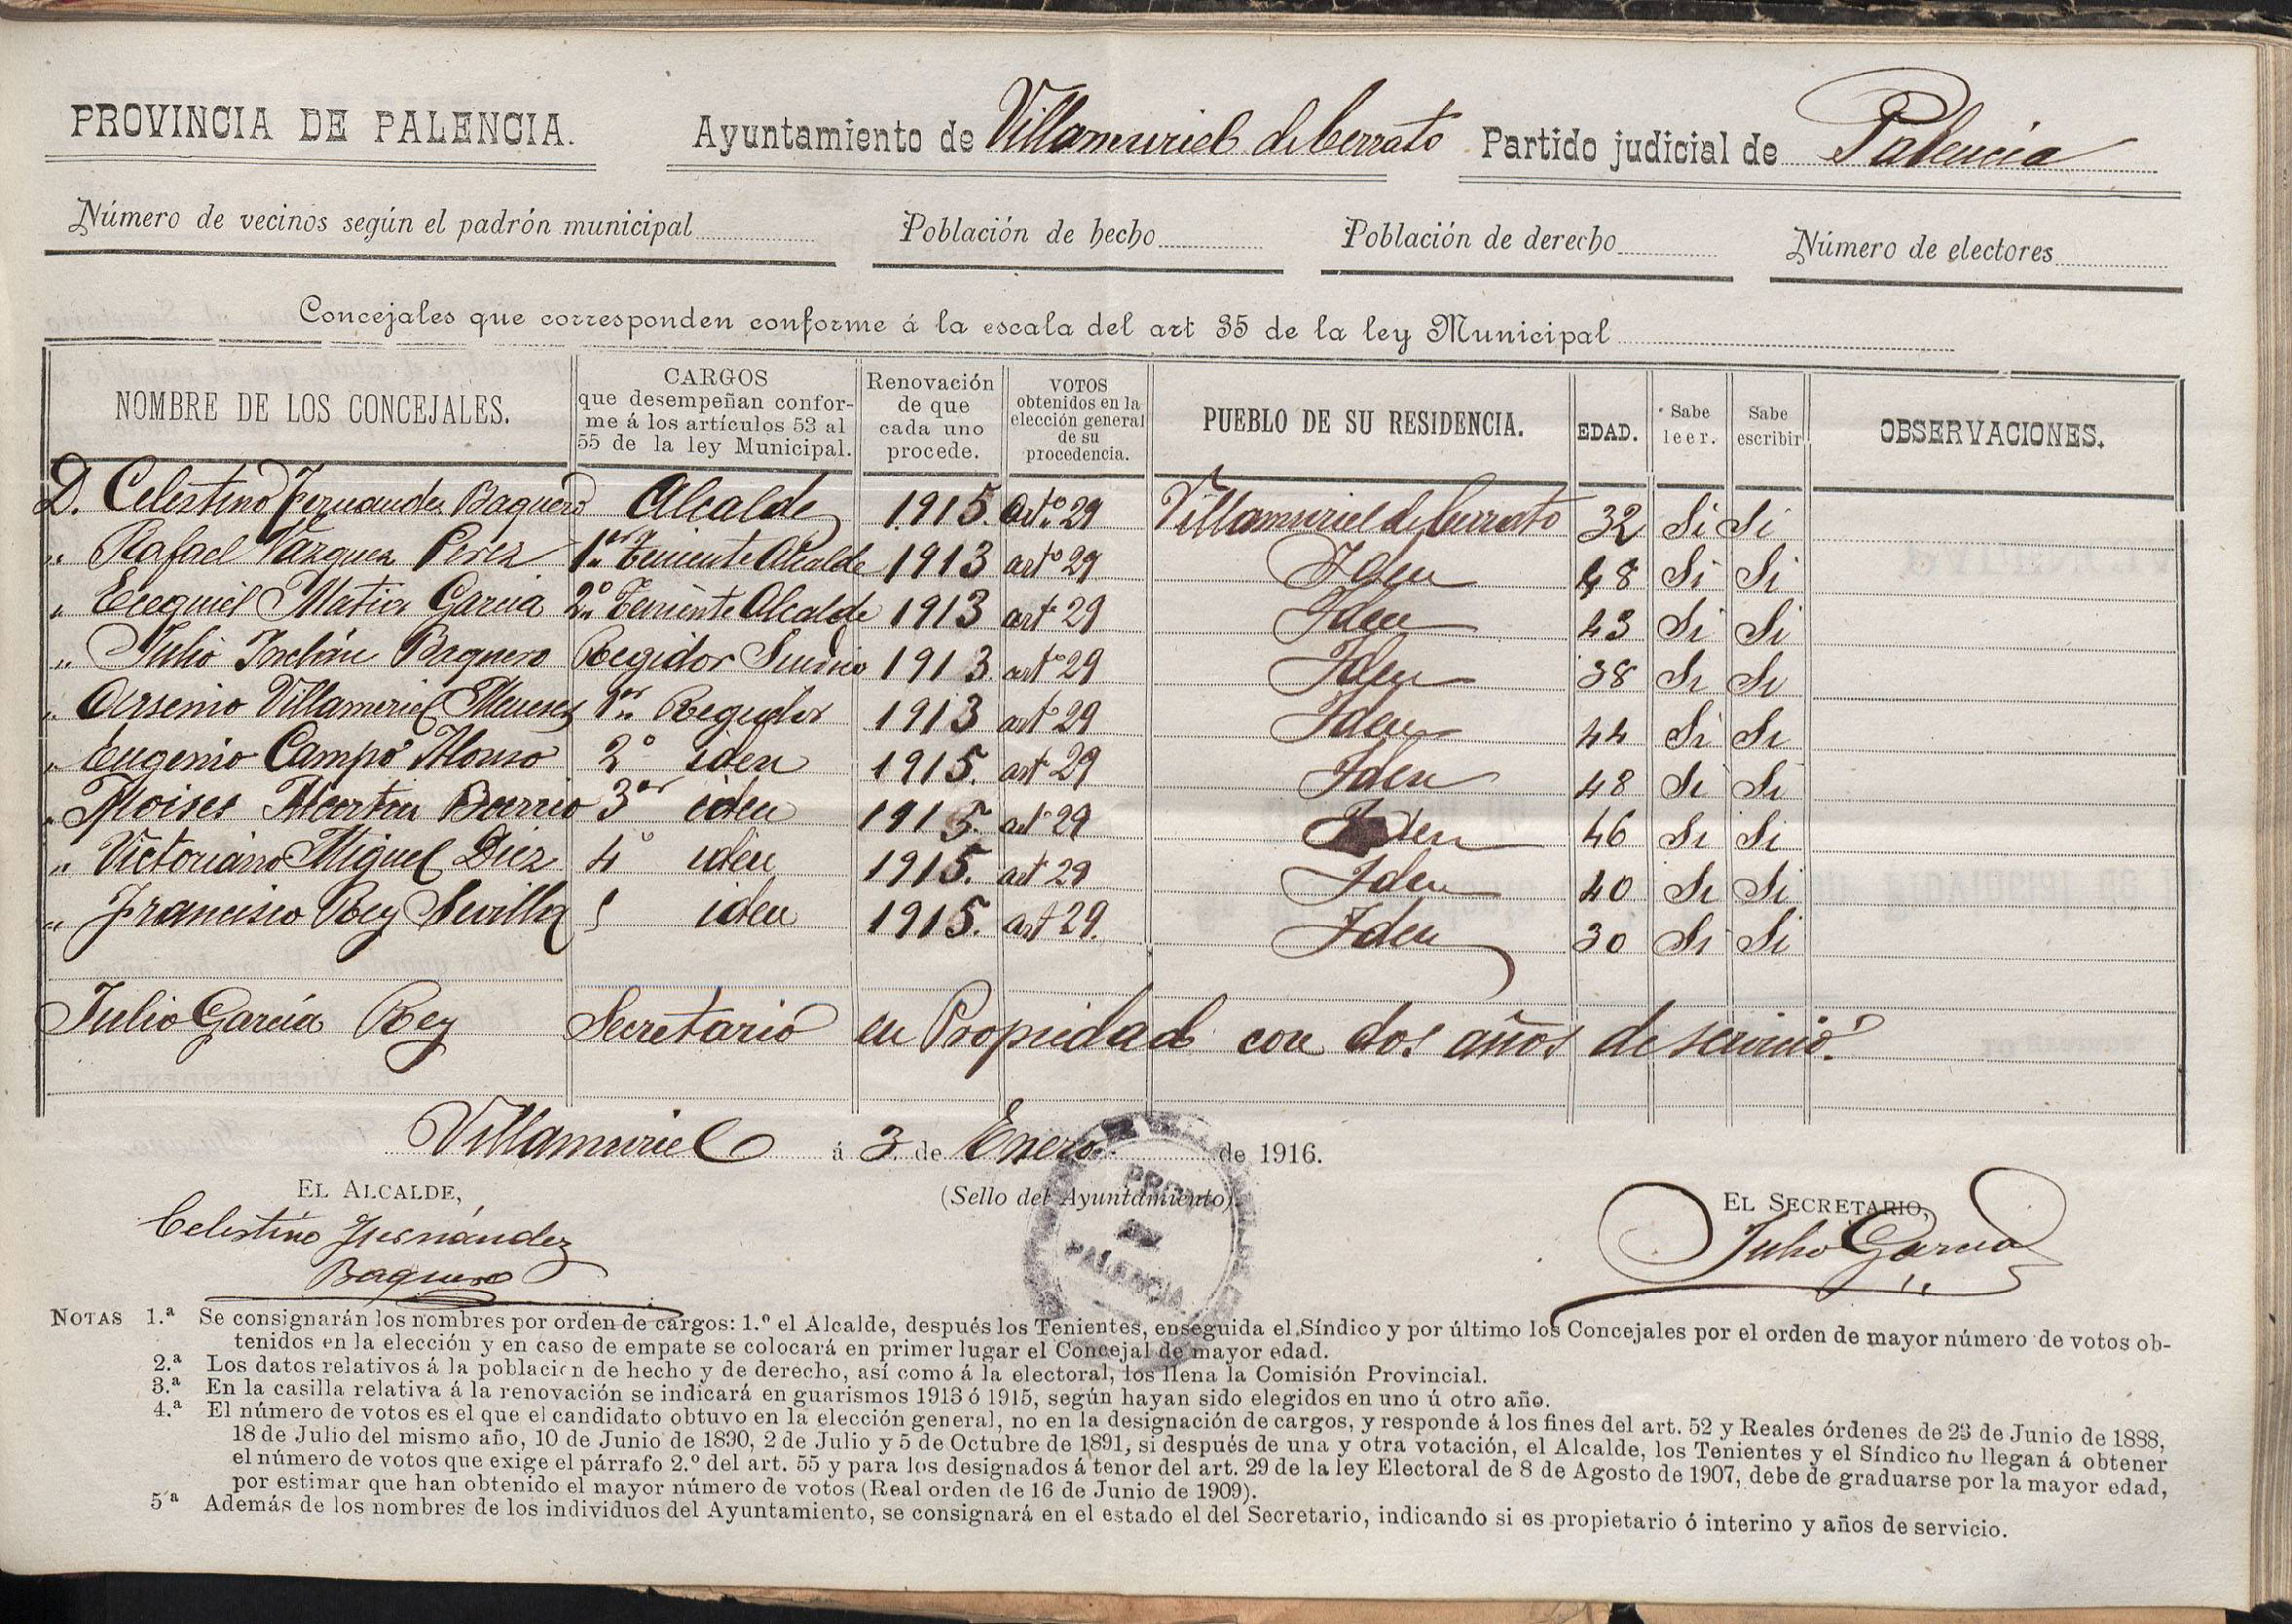 PROVINCIA DE PALENCIA. Ayuntamiento de Villamuriel de Cerrato Partido judicial de Palencia
Número de vecinos según el padrón municipal Población de hecho Población de derecho Número de electores
Concejales que corresponden conforme á la escala del art 35 de la ley Municipal
NOMBRE DE LOS CONCEJALES. CARGOS que desempeñan confor-me á los artículos 53 al 55 de la ley Municipal. Renovación de que cada uno procede. VOTOS obtenidos en la elección general de su procedencia. PUEBLO DE SU RESIDENCIA. EDAD. Sabe leer. Sabe escribir OBSERVACIONES.
D. Celestino Fernandez Baquero Alcalde 1915. artº 29 Villamuriel de Cerrato 32 Si Si
„ Rafael Vazquez Perez 1er Teniente Alcalde 1913 artº 29 Iden 48 Si Si
„ Ecequiel Matia Garcia 2º Teniente Alcalde 1913 artº 29 Iden 43 Si Si
„ Julio Inclán Baquero Regidor Sindico 1913 artº 29 Iden 38 Si Si
„ Arsenio Villameriel Meneses 1er Regidor 1913 artº 29 Iden 44 Si Si
„ Eugenio Campo Alonso 2º iden 1915. art 29 Iden 48 Si Si
„ Moises Martin Barrio 3er iden 1915. art 29 Iden 46 Si Si
„ Victoriano Miguel Diez 4º iden 1915. art 29 Iden 40 Si Si
„ Francisco Rey Sevilla 5 iden 1915. art 29. Iden 30 Si Si
Julio García Rey Secretario en Propiedad con dos años de servicio.
Villamuriel á 3 de Enero de 1916.
EL ALCALDE, (Sello del Ayuntamiento). EL SECRETARIO,
Celestino Fernández Baquero
Julio García
PALENCIA
NOTAS 1.ª Se consignarán los nombres por orden de cargos: 1.º el Alcalde, después los Tenientes, enseguida el Síndico y por último los Concejales por el orden de mayor número de votos ob-
tenidos en la elección y en caso de empate se colocará en primer lugar el Concejal de mayor edad.
2.ª Los datos relativos á la población de hecho y de derecho, así como á la electoral, los llena la Comisión Provincial.
3.ª En la casilla relativa á la renovación se indicará en guarismos 1913 ó 1915, según hayan sido elegidos en uno ú otro año.
4.ª El número de votos es el que el candidato obtuvo en la elección general, no en la designación de cargos, y responde á los fines del art. 52 y Reales órdenes de 23 de Junio de 1888,
18 de Julio del mismo año, 10 de Junio de 1890, 2 de Julio y 5 de Octubre de 1891, si después de una y otra votación, el Alcalde, los Tenientes y el Síndico no llegan á obtener
el número de votos que exige el párrafo 2.º del art. 55 y para los designados á tenor del art. 29 de la ley Electoral de 8 de Agosto de 1907, debe de graduarse por la mayor edad,
por estimar que han obtenido el mayor número de votos (Real orden de 16 de Junio de 1909).
5ª Además de los nombres de los individuos del Ayuntamiento, se consignará en el estado el del Secretario, indicando si es propietario ó interino y años de servicio.